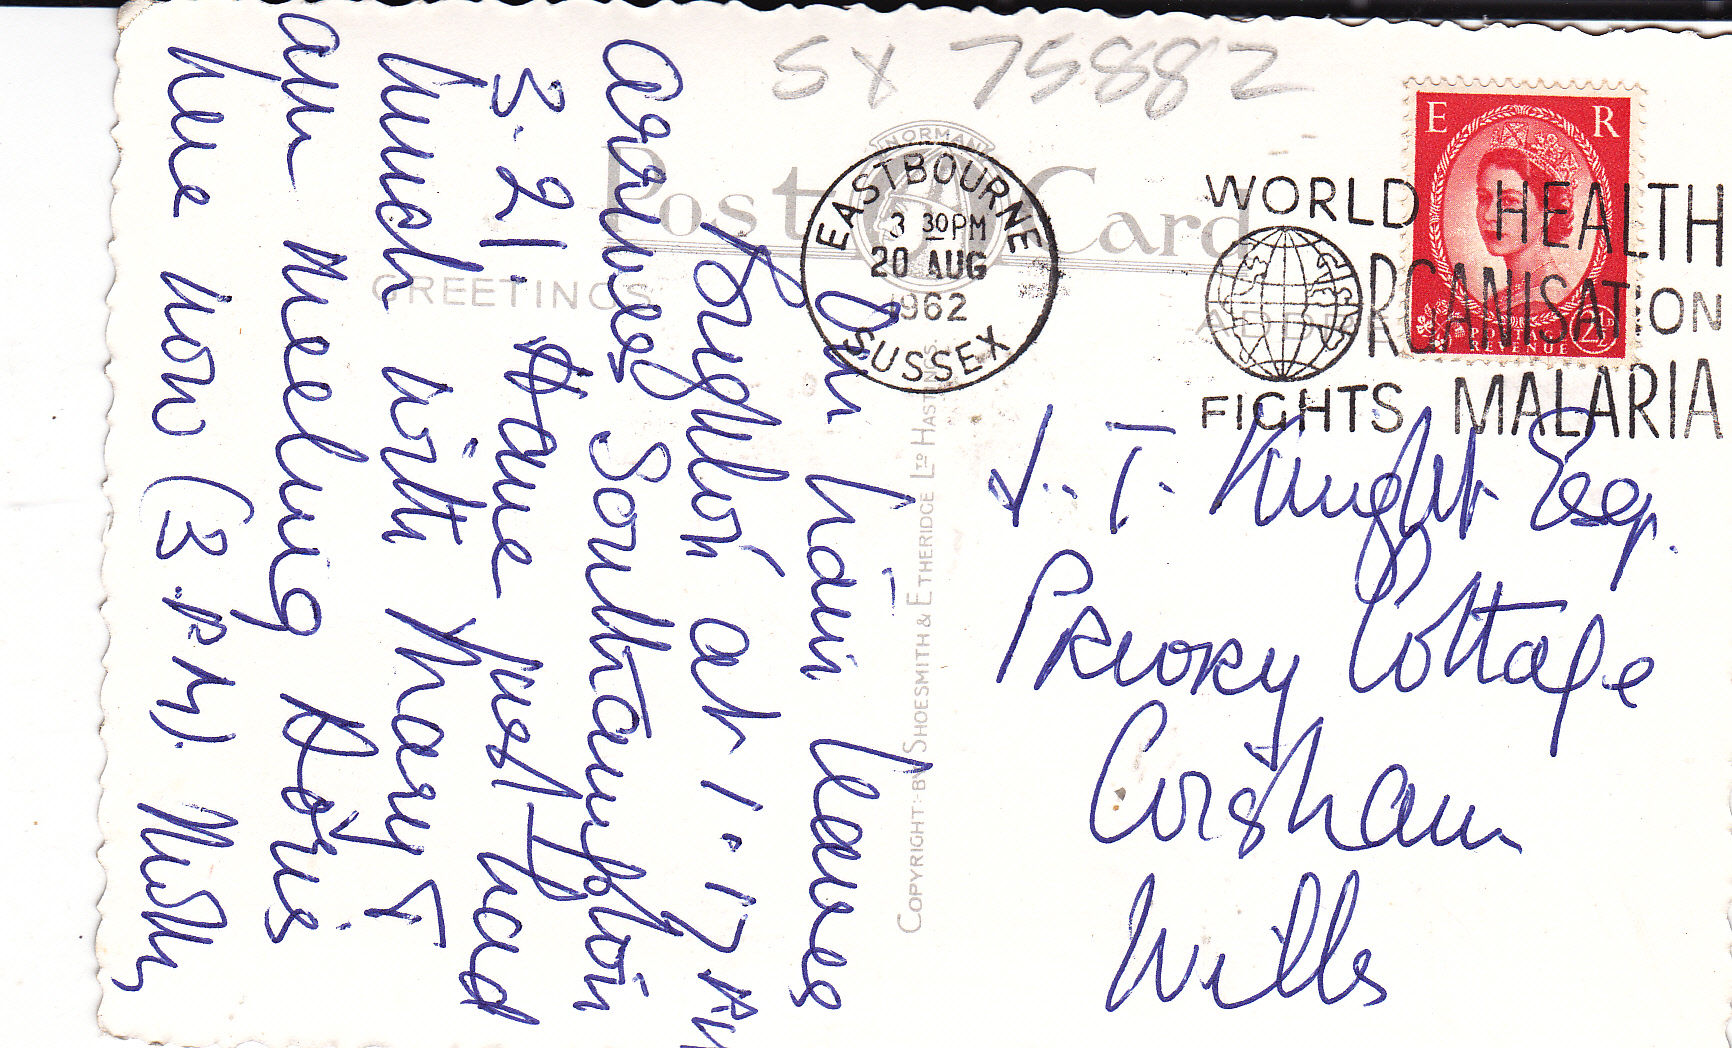 SX 75882
NORMAN
Post Card
GREETINGS
ADDRE
EASTBOURNE
3 30PM
20 AUG
1962
SUSSEX
WORLD HEALTH
ORGANISATION
FIGHTS MALARIA
E R
POSTAGE
REVENUE
2½D
COPYRIGHT:- BY SHOESMITH & ETHERIDGE LTD HASTINGS
Our train leaves
Brighton at 1.17 pm
arrives Southampton
3.21. Have just had
lunch with Mary &
am meeting Doris
here now (3.P.M).
J. T. Knight Esq.
Priory Cottage
Corsham
Wilts